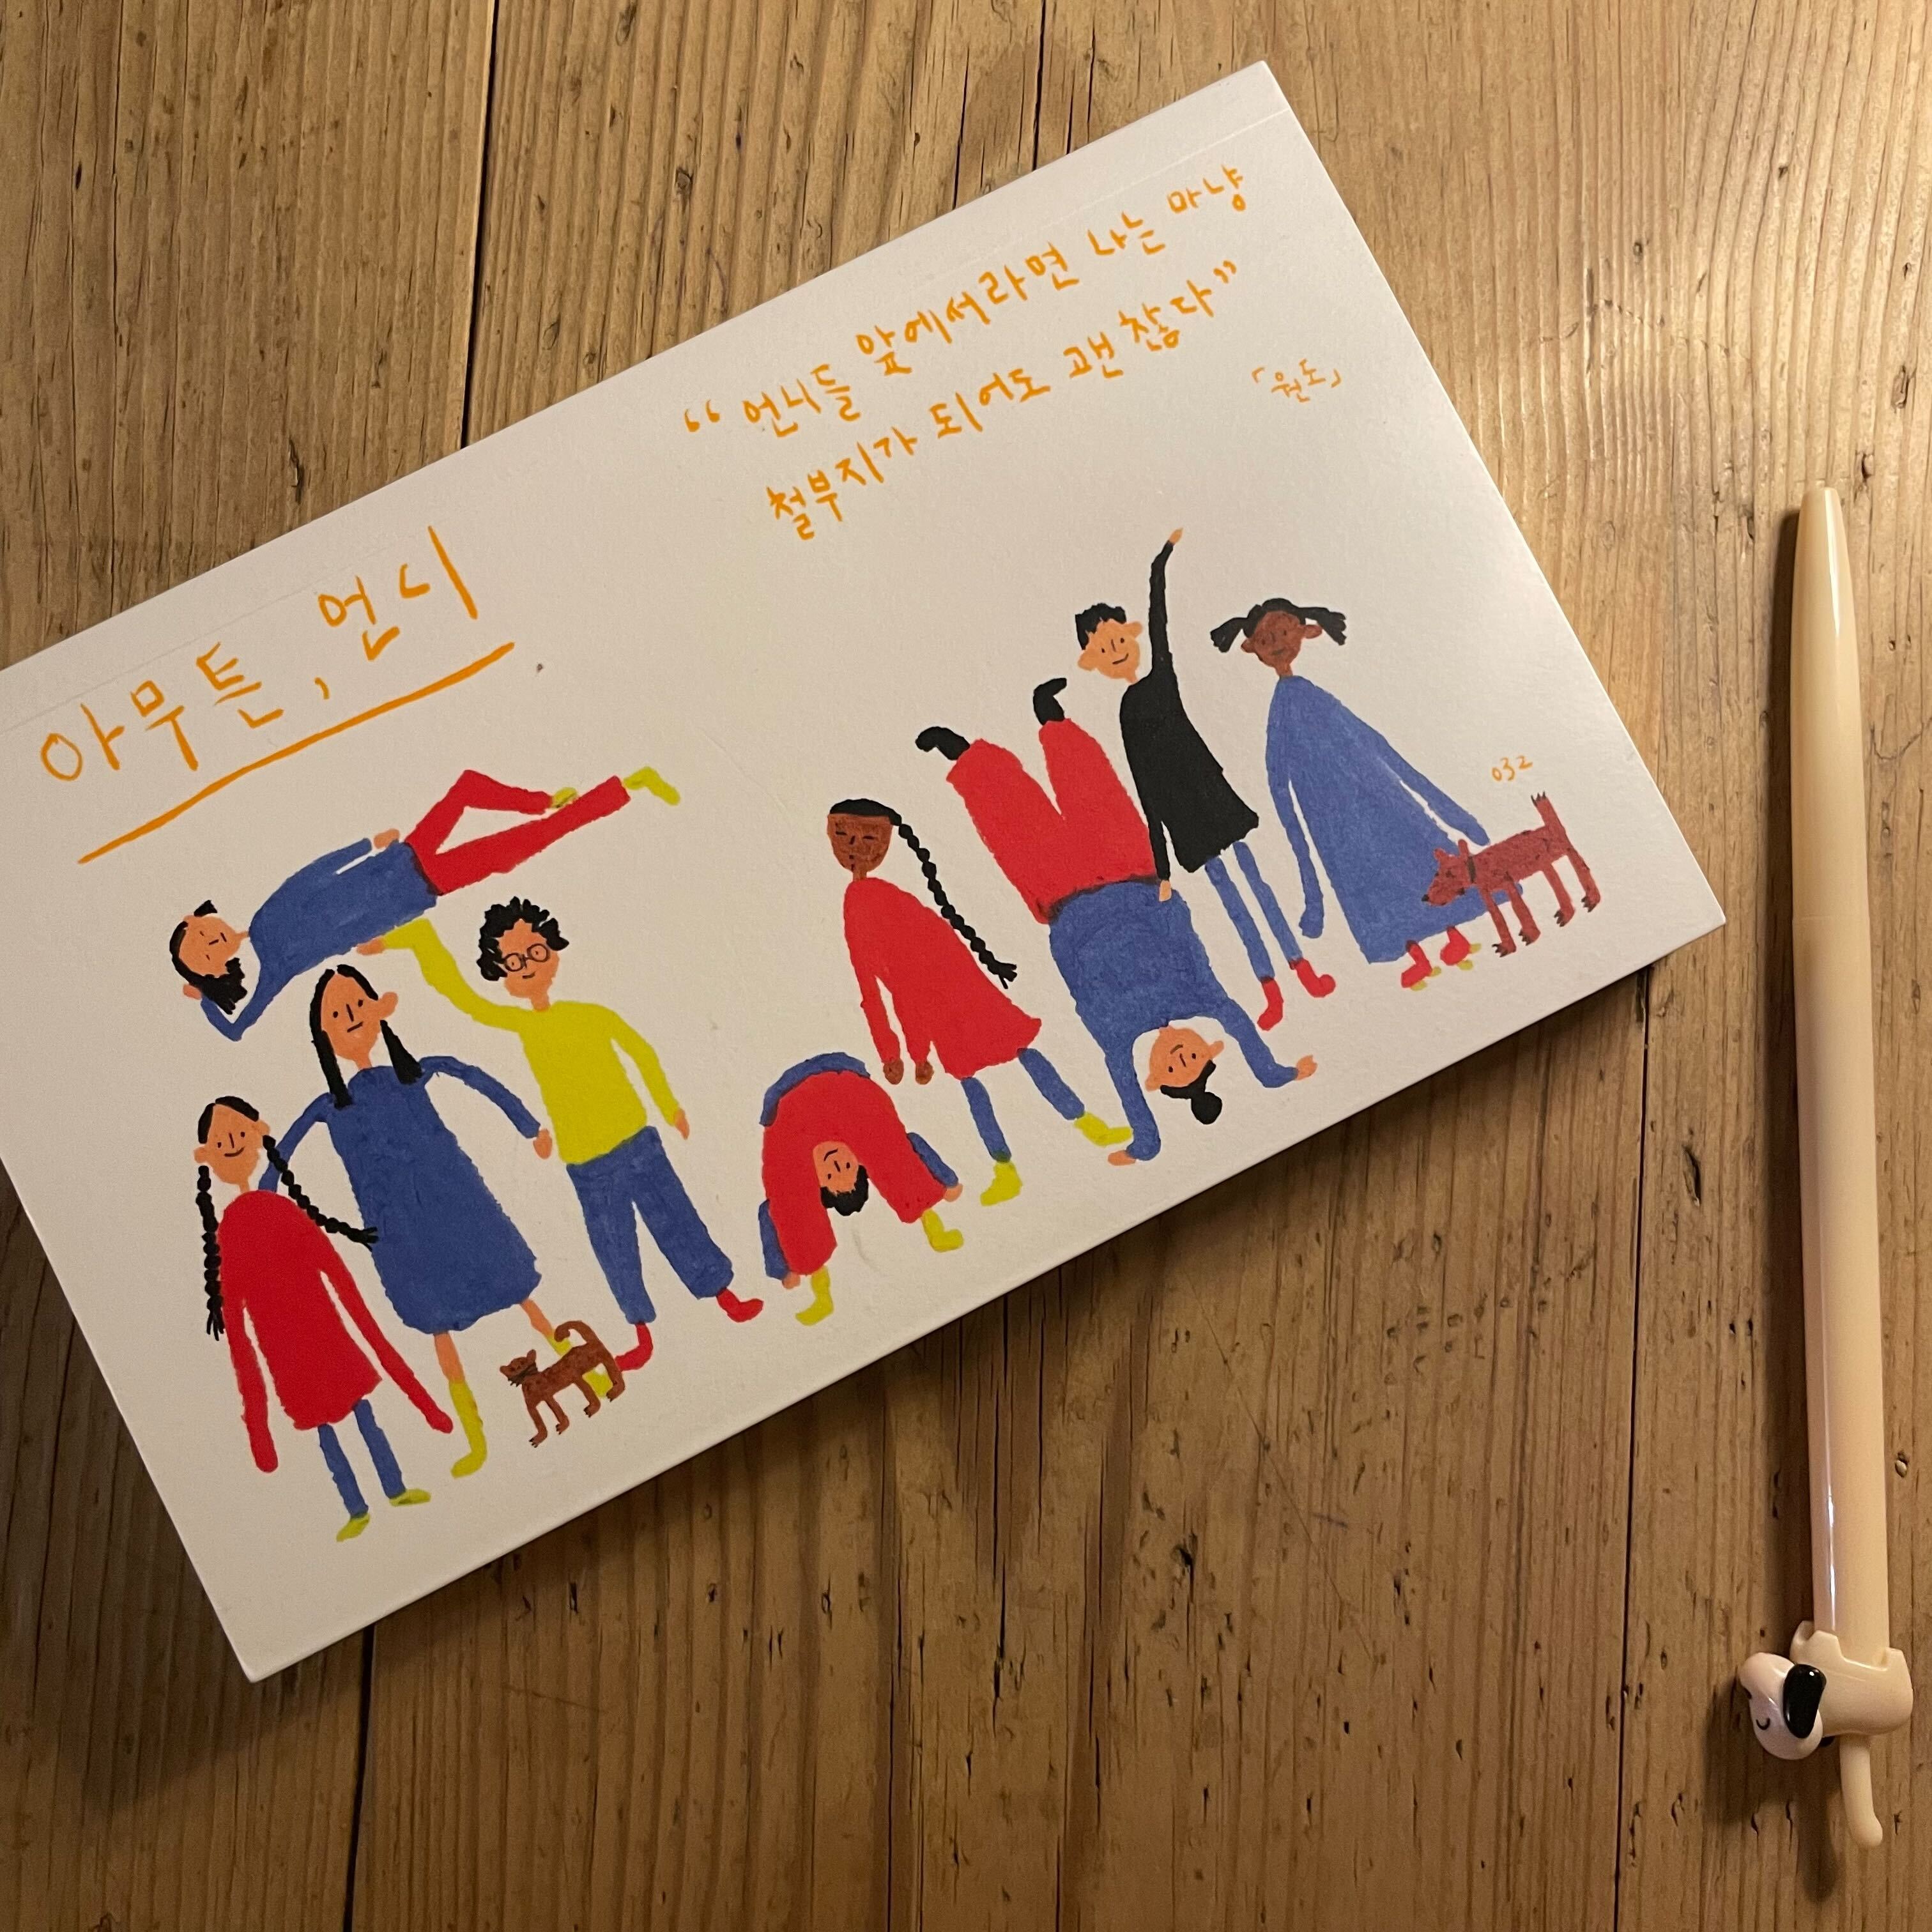 아무튼, 언니
“언니들 앞에서라면 나는 마냥
철부지가 되어도 괜찮다”
「원도」
032